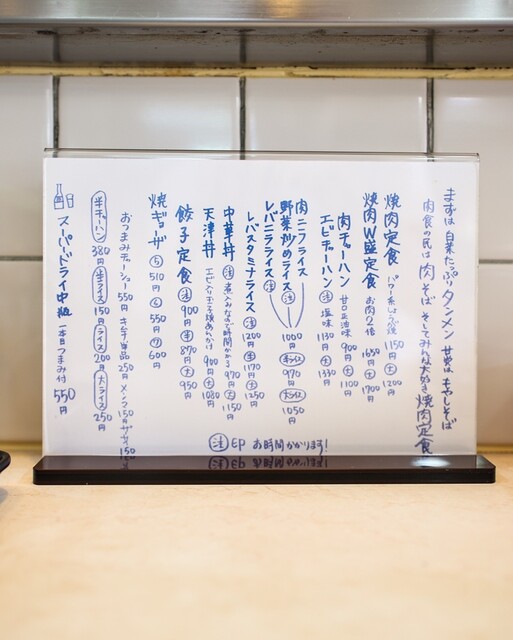 まずは 白菜たっぷり タンメン 甘党は もやしそば
肉食の民は 肉そば そしてみんな大好き 焼肉定食
焼肉定食 1150円 大 1200円
焼肉W盛定食 お肉2倍 1650円 大 1700円
肉チャーハン 甘口正油味 900円 大 1100円
エビチャーハン 注 塩味 1130円 大 1330円
肉ニラライス
野菜炒めライス 注 1000円 半ライス 970円 大ライス 1050円
レバニラライス 注
レバスタミナライス 注 1200円 半 1170円 大 1250円
中華丼 注 煮込みなので時間かかる 970円 大 1150円
天津丼 エビ入り玉子焼あんかけ 900円 大 1080円
餃子定食 注 900円 半 870円 大 950円
焼ギョーザ 5 510円 6 550円 7 600円
おつまみチャーシュー 550円 キムチ単品 250円 メンマ 150円
半チャーハン 380円 半ライス 150円 ライス 200円 大ライス 250円
スーパードライ中瓶 一本目つまみ付 550円
注 印 お時間かかります!